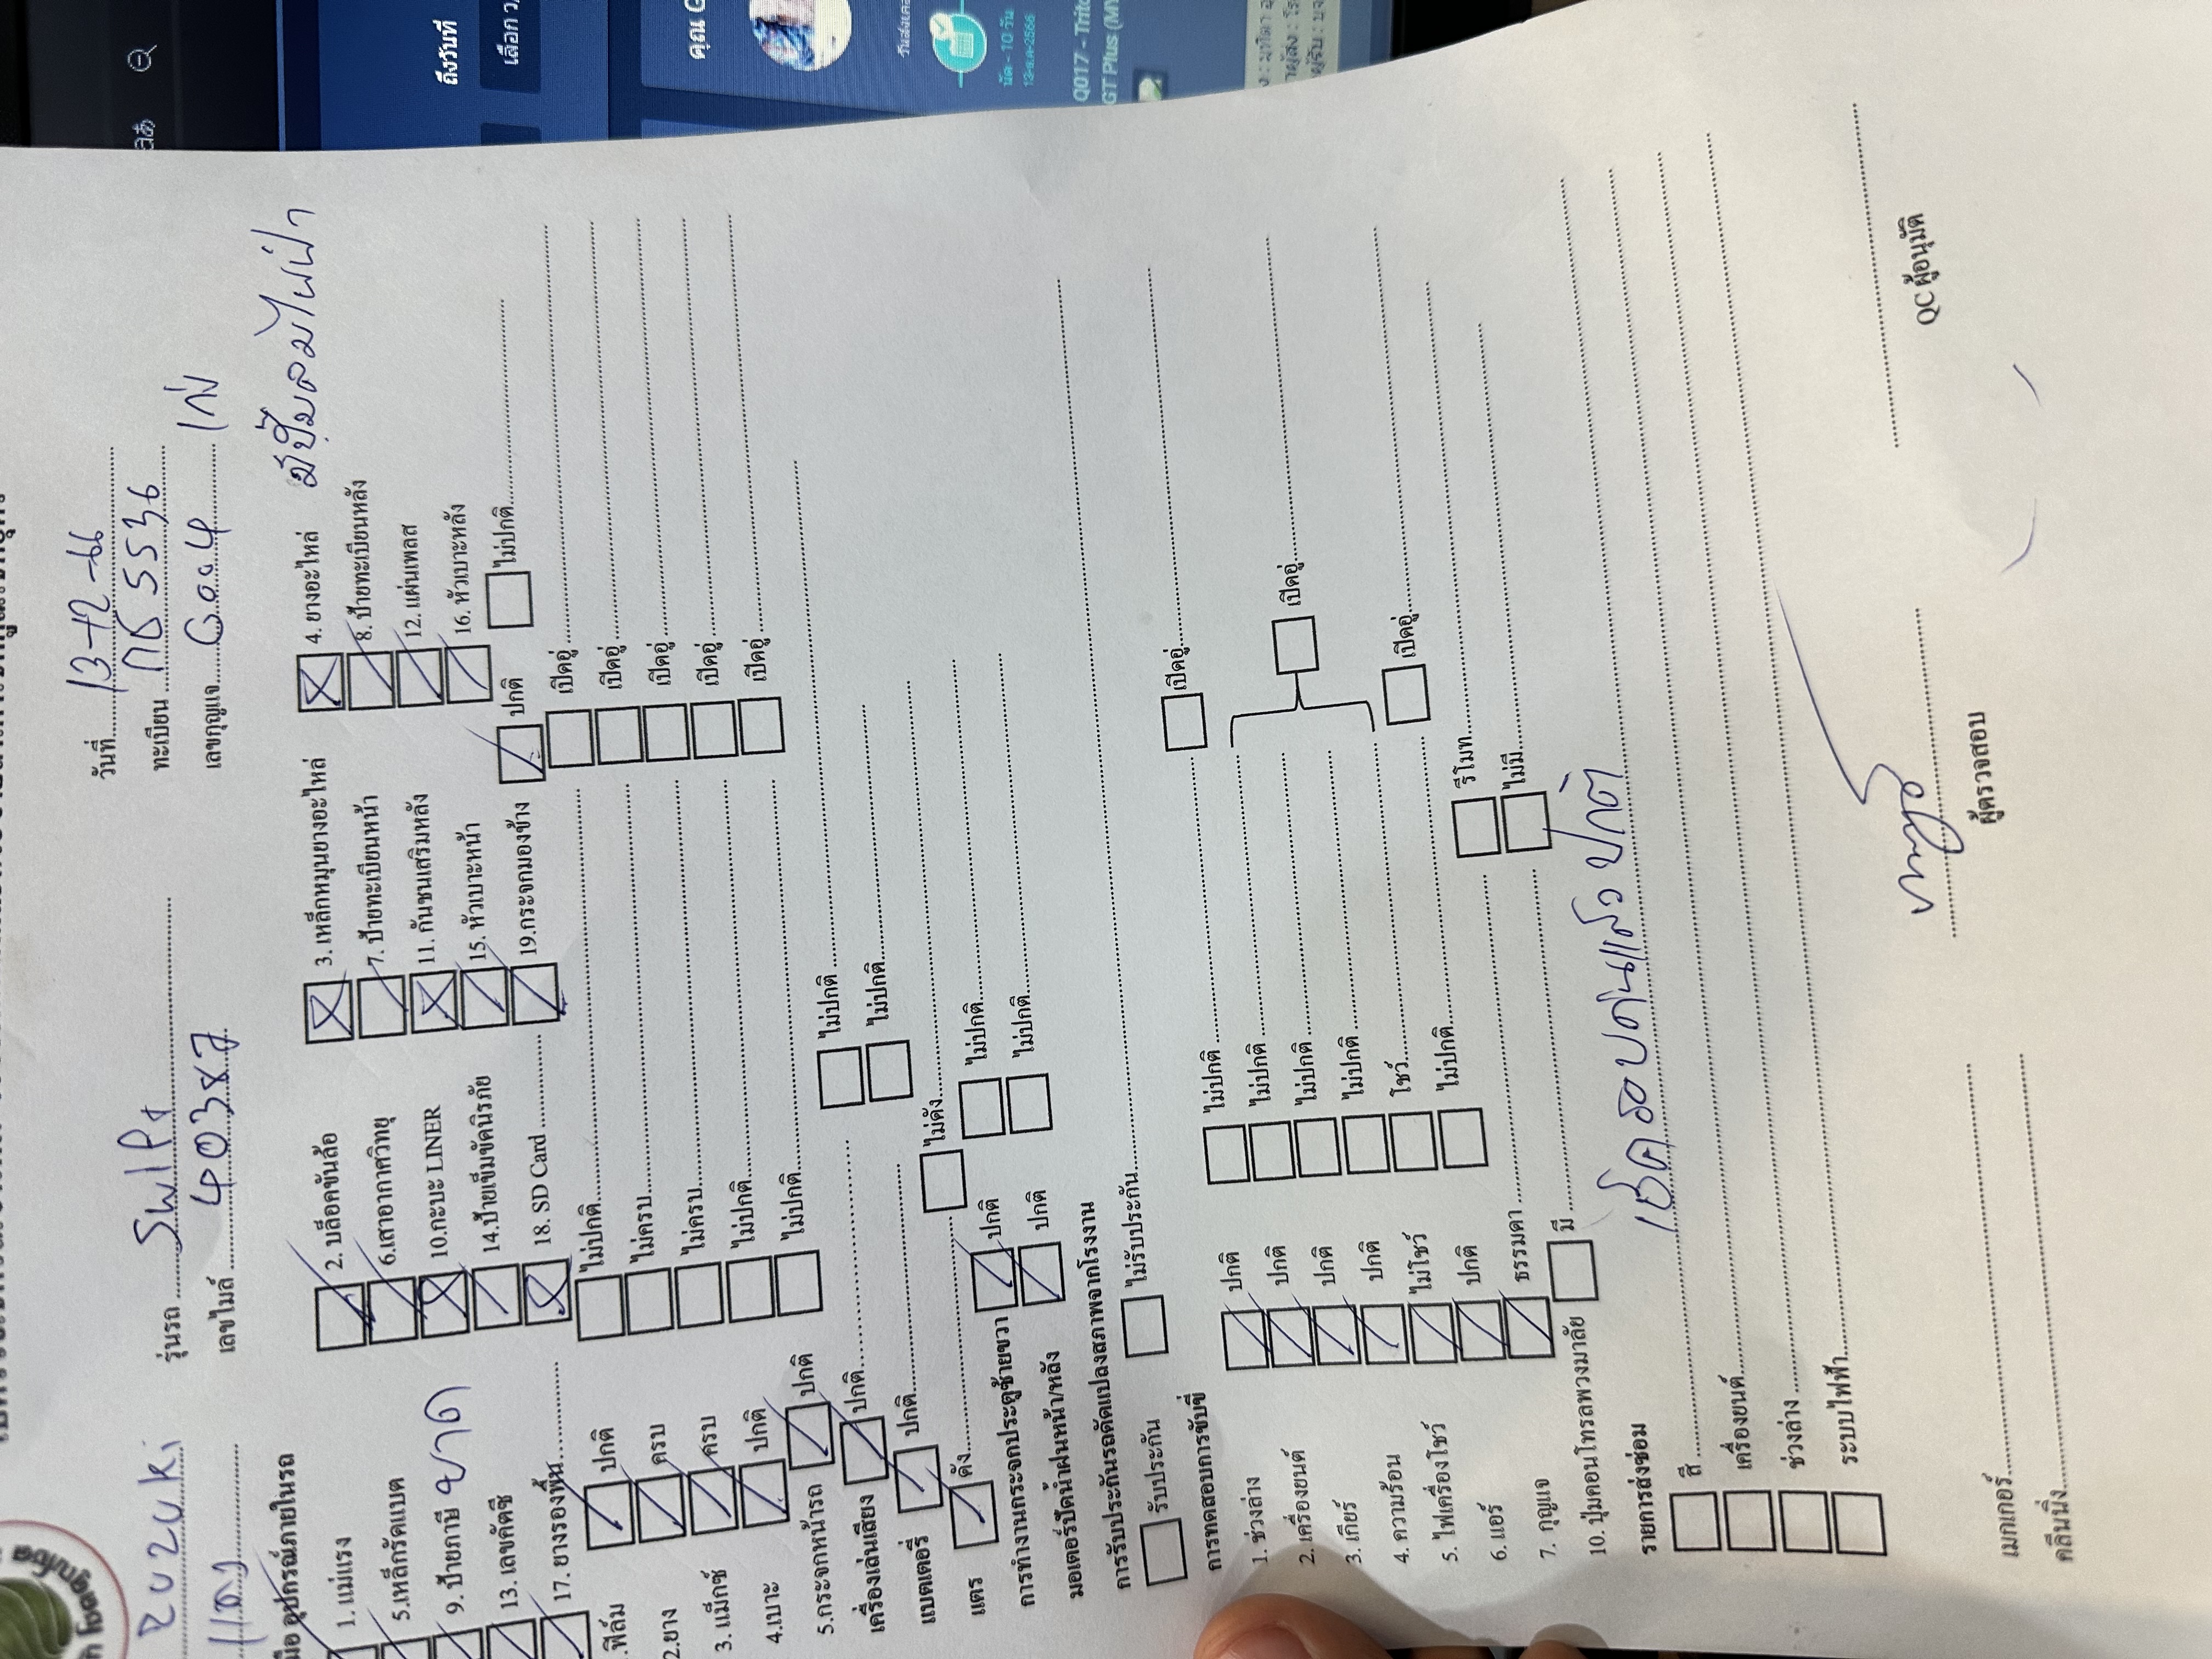 วันที่ 13-12-66
Suzuki รุ่นรถ Swift ทะเบียน 5536
แดง เลขไมล์ 40387 เลขกุญแจ 6004 เก่ง
อุปกรณ์ภายในรถ
1. แม่แรง 2. บล็อคขันล้อ 3. เหล็กหมุนยางอะไหล่ 4. ยางอะไหล่ มีปั๊มลมไฟฟ้า
5.เหล็กรัดแบต 6.เสาอากาศวิทยุ 7. ป้ายทะเบียนหน้า 8. ป้ายทะเบียนหลัง
9. ป้ายภาษี ขาด 10.กะบะ LINER 11. กันชนเสริมหลัง 12. แผ่นเพลส
13. เลขคัตซี 14.ป้ายเข็มขัดนิรภัย 15. หัวเบาะหน้า 16. หัวเบาะหลัง
17. ยางรองพื้น 18. SD Card 19.กระจกมองข้าง ปกติ ไม่ปกติ
.ฟิล์ม ปกติ ไม่ปกติ เปิดอู่
2.ยาง ครบ ไม่ครบ เปิดอู่
3. แม็กซ์ ครบ ไม่ครบ เปิดอู่
4.เบาะ ปกติ ไม่ปกติ เปิดอู่
5.กระจกหน้ารถ ปกติ ไม่ปกติ เปิดอู่
เครื่องเล่นเสียง ปกติ ไม่ปกติ
แบตเตอรี่ ปกติ ไม่ปกติ
แตร ดัง ไม่ดัง
การทำงานกระจกประตูซ้ายขวา ปกติ ไม่ปกติ
มอเตอร์ปัดน้ำฝนหน้า/หลัง ปกติ ไม่ปกติ
การรับประกันรถดัดแปลงสภาพจากโรงงาน
รับประกัน ไม่รับประกัน
การทดสอบการขับขี่
1. ช่วงล่าง ปกติ ไม่ปกติ เปิดอู่
2. เครื่องยนต์ ปกติ ไม่ปกติ
3. เกียร์ ปกติ ไม่ปกติ เปิดอู่
4. ความร้อน ปกติ ไม่ปกติ
5. ไฟเครื่องโชว์ ไม่โชว์ โชว์ เปิดอู่
6. แอร์ ปกติ ไม่ปกติ
7. กุญแจ ธรรมดา รีโมท
10. ปุ่มคอนโทรลพวงมาลัย มี ไม่มี
รายการส่งซ่อม
สี เช็ครอบคันแล้ว ปกติ
เครื่องยนต์
ช่วงล่าง
ระบบไฟฟ้า
เมกเกอร์
คลีนนิ่ง
ผู้ตรวจสอบ QC ผู้อนุมัติ
ถึงวันที่
เลือก ว
คุณ G
นัด - 10 วัน
Q017 - Trito
GT Plus (M